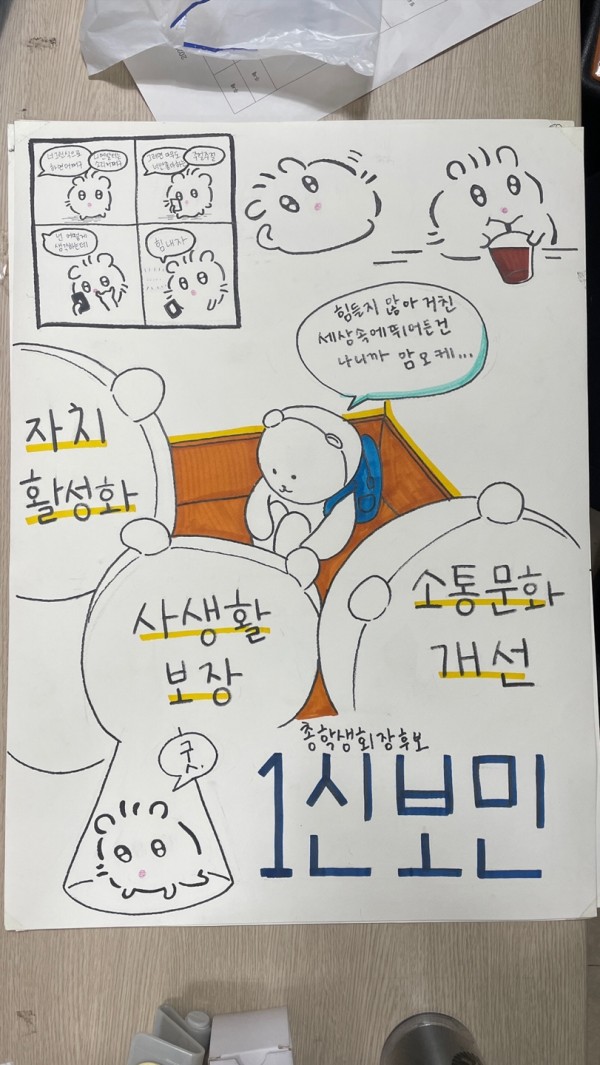 힘내자
힘들지 않아 거친
세상속에 뛰어든건
나니까 암오케...
자치
활성화
사생활
보장
소통문화
개선
굿.
총학생회장후보
1신보민